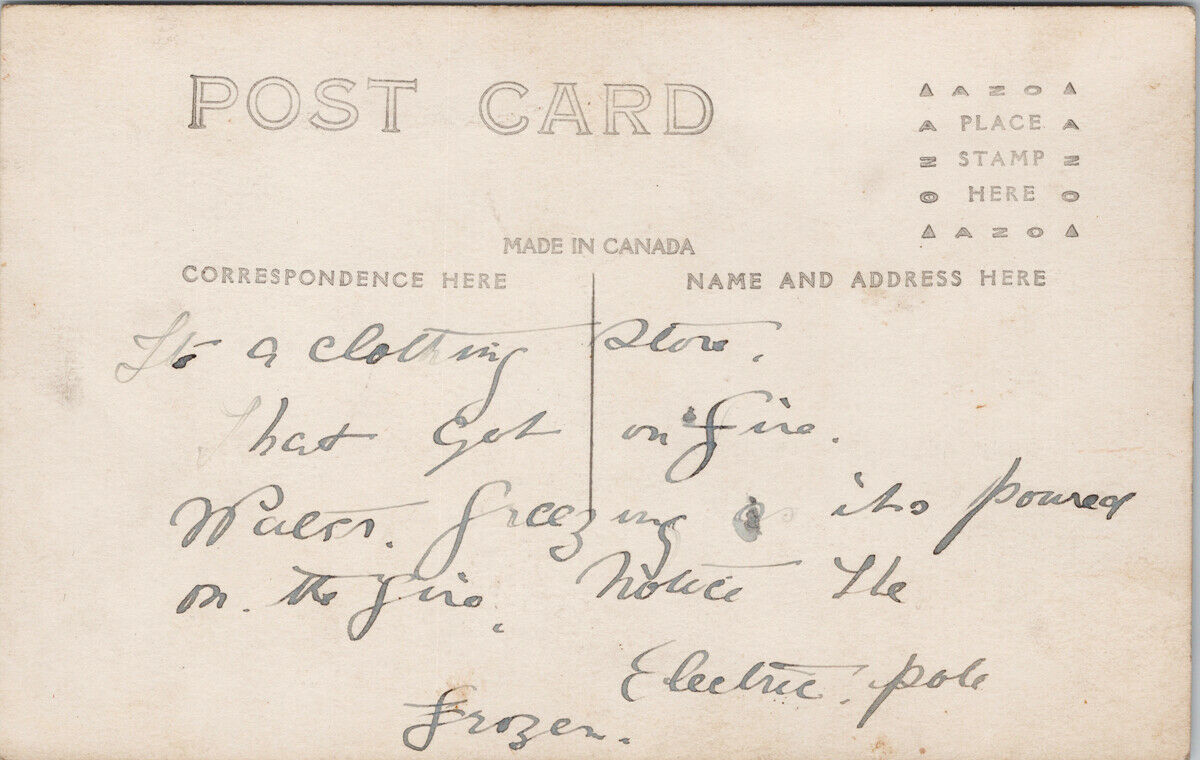 POST CARD
▲ A Z O ▲
A PLACE A
Z STAMP Z
O HERE O
▲ A Z O ▲
MADE IN CANADA
CORRESPONDENCE HERE
NAME AND ADDRESS HERE
Its a clothing store.
That Got on fire.
Water. freezing as its poured
on. the fire. Notice The
Electric. pole
frozen.